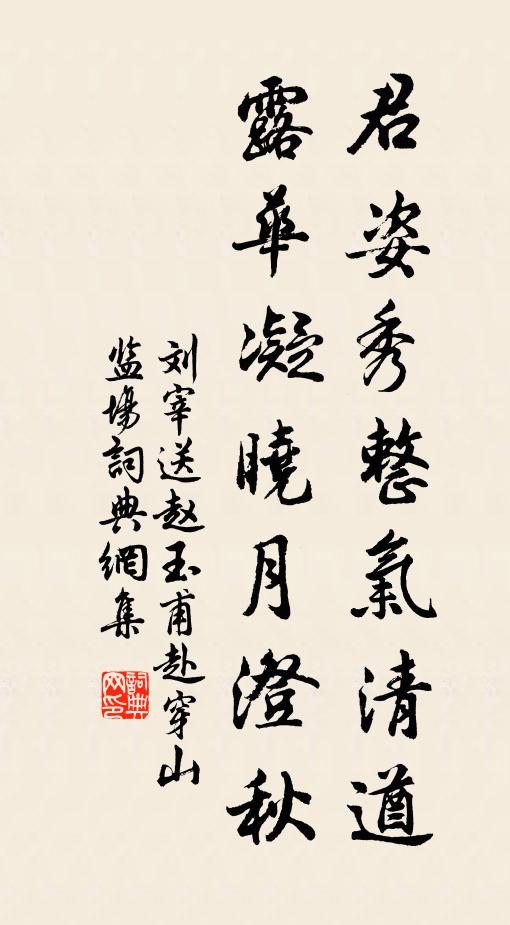 君姿秀整氣清遒
露華凝曉月澄秋
刘宰送赵玉甫赴穿山
监場詞典網集
詞典网印